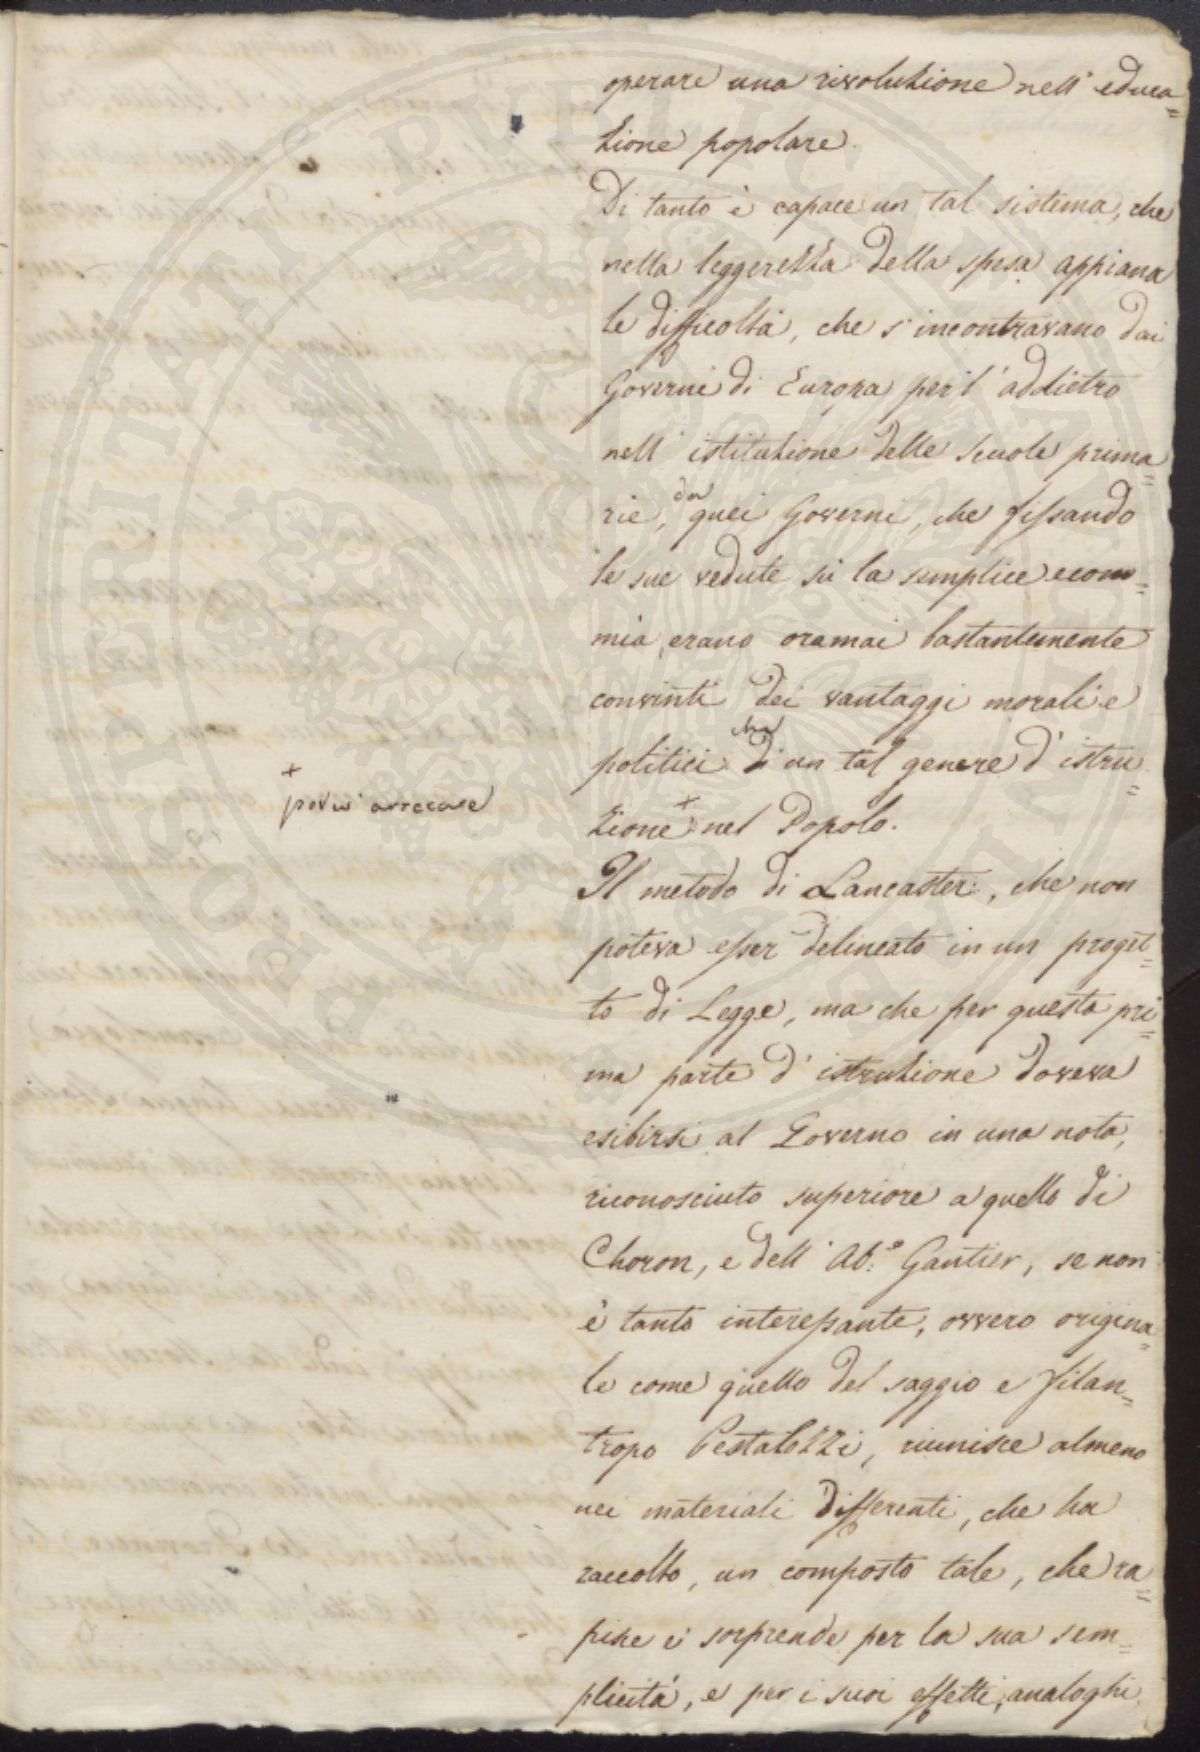 operare una rivoluzione nell' educa=
zione popolare.
Di tanto è capace un tal sistema, che
nella leggerezza della spesa appiana
le difficoltà, che s' incontravano dai
Governi di Europa per l' addietro
nell' istituzione delle scuole prima=
rie, da quei Governi, che fissando
le sue vedute sù la semplice econo=
mia, erano oramai bastantemente
convinti dei vantaggi morali e
politici che un tal genere d' istru=
zione + nel Popolo.
+
potea arrecare
Il metodo di Lancaster, che non
poteva esser delineato in un proget=
to di Legge, ma che per questa pri=
ma parte d' istruzione doveva
esibirsi al Governo in una nota,
riconosciuto superiore a quello di
Choron, e dell' Ab.e Gautier, se non
è tanto interessante, ovvero origina=
le come quello del saggio e filan=
tropo Pestalozzi, riunisce almeno
nei materiali differenti, che ha
raccolto, un composto tale, che ra=
pisce e sorprende per la sua sem=
plicità, e per i suoi effetti, analoghi
PROSPERITATI PVBLICAE AVGENDAE